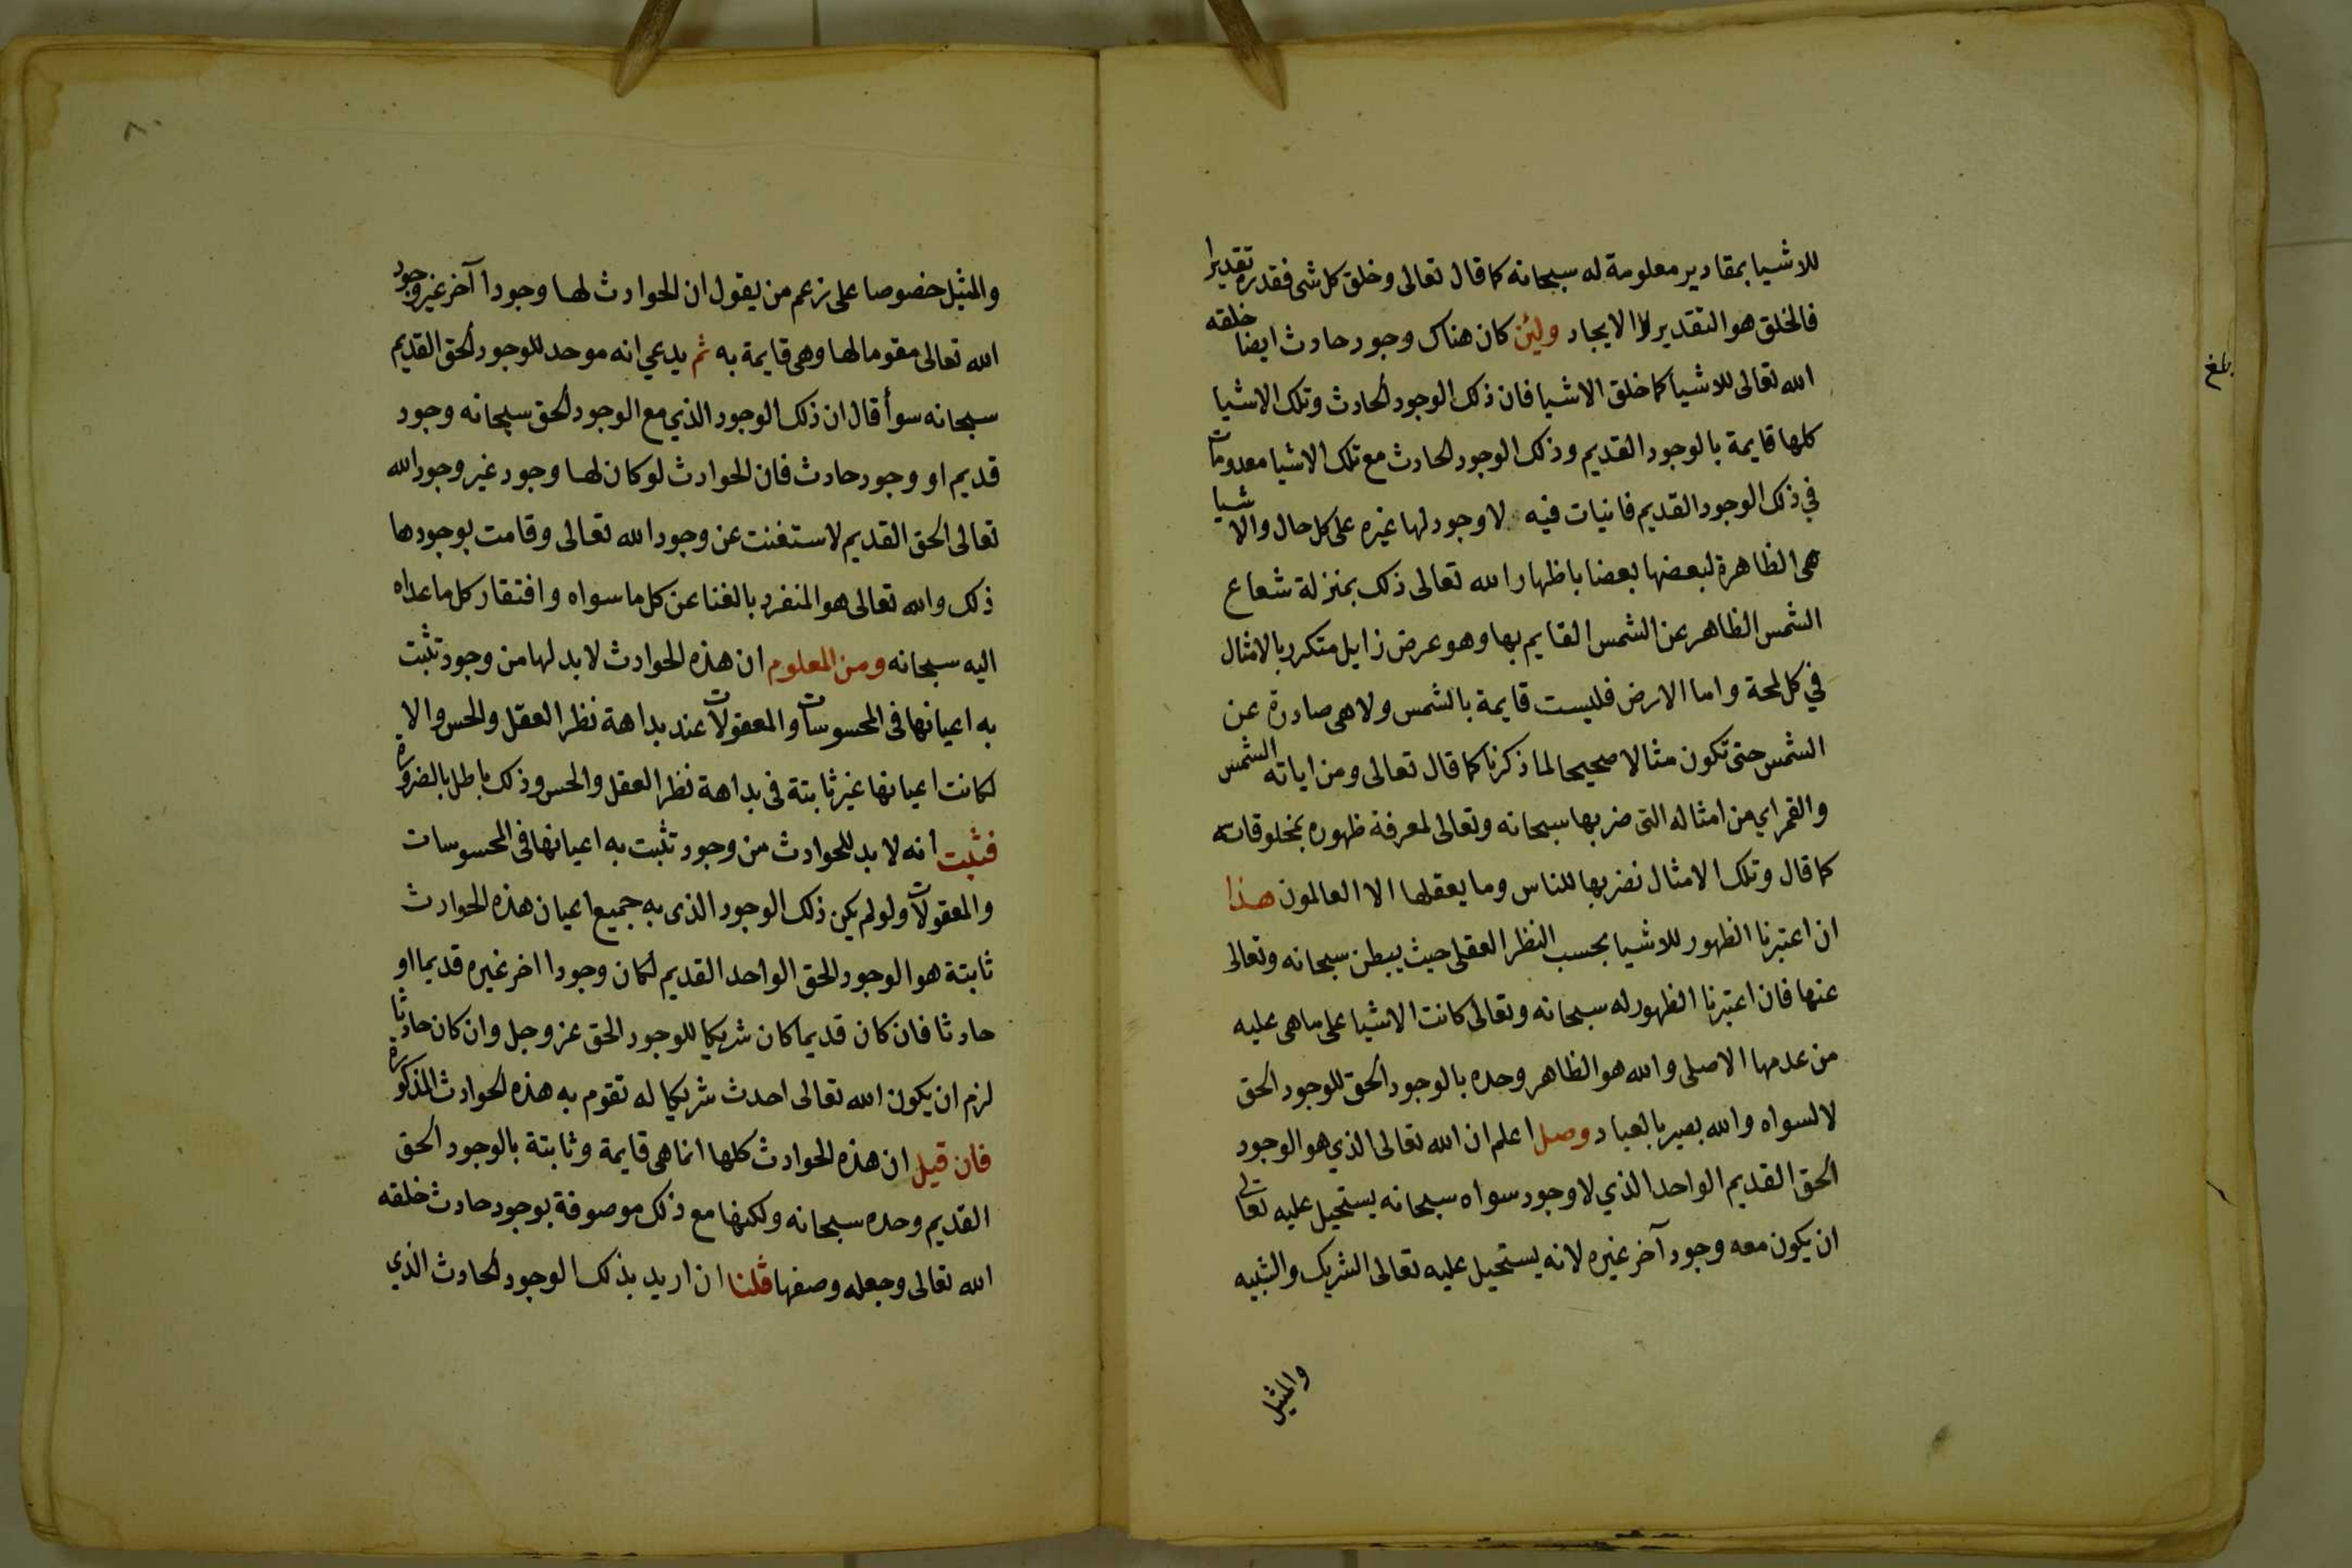 للاشيا بمقادير معلومة له سبحانه كما قال تعالى وخلق كل شى فقدره تقديرا
فالخلق هو التقدير لا الايجاد ولئن كان هناك وجود حادث ايضا خلقه
الله تعالى للاشيا كما خلق الاشيا فان ذلك الوجود الحادث وتلك الاشيا
كلها قايمة بالوجود القديم وذلك الوجود الحادث مع تلك الاشيا معدومات
في ذلك الوجود القديم فانيات فيه لا وجود لها غيره على كل حال والاشيا
هى الظاهرة لبعضها بعضا باظهار الله تعالى ذلك بمنزلة شعاع
الشمس الظاهر عن الشمس القايم بها وهو عرض زايل متكرر بالامثال
في كل لمحة واما الارض فليست قايمة بالشمس ولا هى صادرة عن
الشمس حتى تكون مثالا صحيحا لما ذكرنا كما قال تعالى ومن اياته الشمس
والقمر اي من امثاله التى ضربها سبحانه وتعالى لمعرفة ظهوره بمخلوقاته
كما قال وتلك الامثال نضربها للناس وما يعقلها الا العالمون هذا
ان اعتبرنا الظهور للاشيا بحسب النظر العقلى حيث يبطن سبحانه وتعالى
عنها فان اعتبرنا الظهور له سبحانه وتعالى كانت الاشيا على ما هى عليه
من عدمها الاصلى والله هو الظاهر وحده بالوجود الحق للوجود الحق
لا لسواه والله بصير بالعباد وصل اعلم ان الله تعالى الذي هو الوجود
الحق القديم الواحد الذي لا وجود سواه سبحانه يستحيل عليه تعالى
ان يكون معه وجود آخر غيره لانه يستحيل عليه تعالى الشريك والشبيه
والمثيل
بلغ
٨٠
والمثيل خصوصا على زعم من يقول ان الحوادث لها وجودا آخر غير وجود
الله تعالى مقوما لها وهى قايمة به ثم يدعي انه موحد للوجود الحق القديم
سبحانه سوأ قال ان ذلك الوجود الذي مع الوجود الحق سبحانه وجود
قديم او وجود حادث فان الحوادث لو كان لها وجود غير وجود الله
تعالى الحق القديم لاستغنت عن وجود الله تعالى وقامت بوجودها
ذلك والله تعالى هو المنفرد بالغنا عن كل ما سواه وافتقار كل ما عداه
اليه سبحانه ومن المعلوم ان هذه الحوادث لا بد لها من وجود تثبت
به اعيانها فى المحسوسات والمعقولات عند بداهة نظر العقل والحس والا
لكانت اعيانها غير ثابتة فى بداهة نظر العقل والحس وذلك باطل بالضرورة
فثبت انه لا بد للحوادث من وجود تثبت به اعيانها فى المحسوسات
والمعقولات ولو لم يكن ذلك الوجود الذى به جميع اعيان هذه الحوادث
ثابتة هو الوجود الحق الواحد القديم لكان وجودا اخر غيره قديما او
حادثا فان كان قديما كان شريكا للوجود الحق عز وجل وان كان حادثا
لزم ان يكون الله تعالى احدث شريكا له تقوم به هذه الحوادث المذكورة
فان قيل ان هذه الحوادث كلها انما هى قايمة وثابتة بالوجود الحق
القديم وحده سبحانه ولكنها مع ذلك موصوفة بوجود حادث خلقه
الله تعالى وجعله وصفها قلنا ان اريد بذلك الوجود الحادث الذي